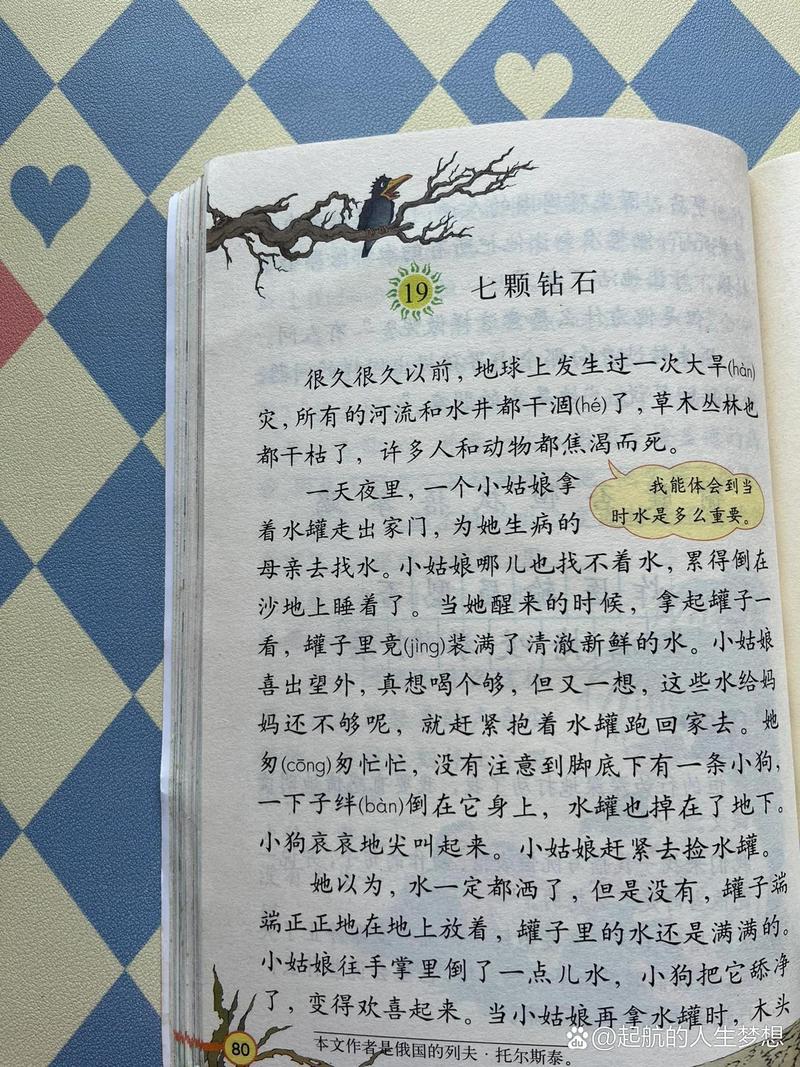 19 七颗钻石
很久很久以前，地球上发生过一次大旱(hàn)
灾，所有的河流和水井都干涸(hé)了，草木丛林也
都干枯了，许多人和动物都焦渴而死。
一天夜里，一个小姑娘拿
我能体会到当
时水是多么重要。
着水罐走出家门，为她生病的
母亲去找水。小姑娘哪儿也找不着水，累得倒在
沙地上睡着了。当她醒来的时候，拿起罐子一
看，罐子里竟(jìng)装满了清澈新鲜的水。小姑娘
喜出望外，真想喝个够，但又一想，这些水给妈
妈还不够呢，就赶紧抱着水罐跑回家去。她
匆(cōng)匆忙忙，没有注意到脚底下有一条小狗，
一下子绊(bàn)倒在它身上，水罐也掉在了地下。
小狗哀哀地尖叫起来。小姑娘赶紧去捡水罐。
她以为，水一定都洒了，但是没有，罐子端
端正正地在地上放着，罐子里的水还是满满的。
小姑娘往手掌里倒了一点儿水，小狗把它舔净
了，变得欢喜起来。当小姑娘再拿水罐时，木头
本文作者是俄国的列夫·托尔斯泰。
80
@起航的人生梦想